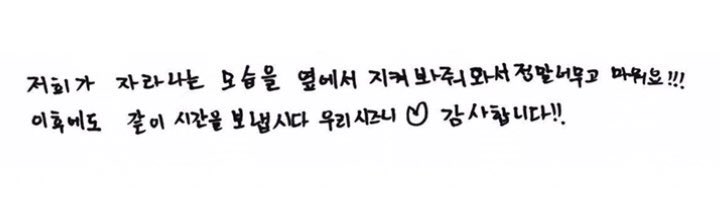 저희가 자라나는 모습을 옆에서 지켜봐줘와서 정말너무고 마워요!!!
이후에도 같이 시간을 보냅시다 우리시즈니 ♡ 감사합니다!!